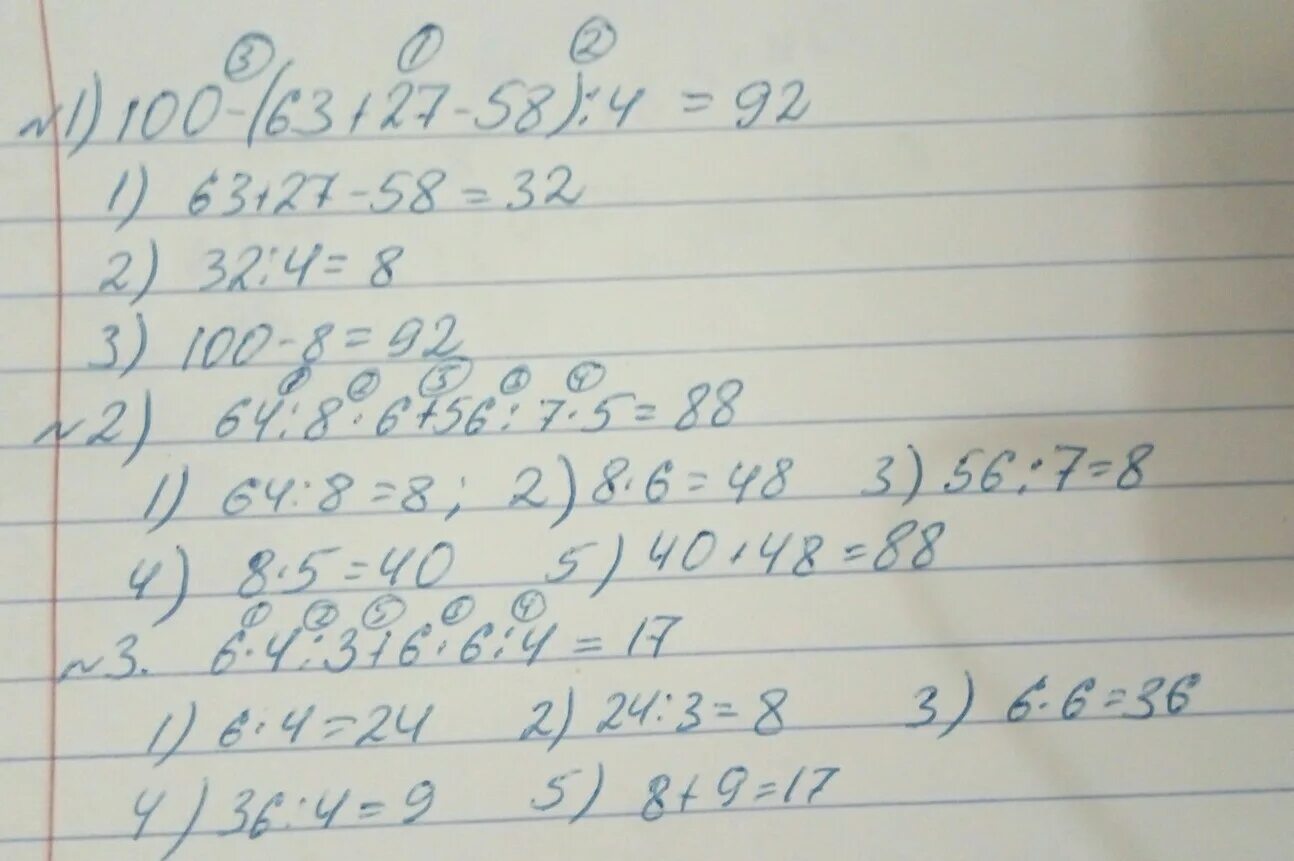 ③ ① ②
№1) 100-(63+27-58):4 = 92
1) 63+27-58=32
2) 32:4=8
3) 100-8=92
① ② ⑤ ③ ④
№2) 64:8·6+56:7·5=88
1) 64:8=8; 2) 8·6=48 3) 56:7=8
4) 8·5=40 5) 40+48=88
① ② ⑤ ③ ④
№3. 6·4:3+6·6:4=17
1) 6·4=24 2) 24:3=8 3) 6·6=36
4) 36:4=9 5) 8+9=17